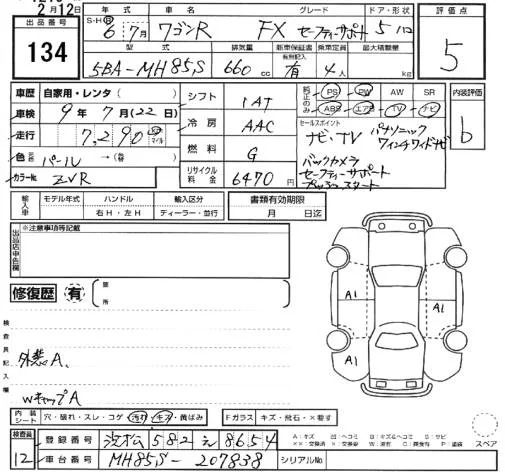 2月12日
出品番号
134
年式 車名 グレード ドア・形状
S・H・R 6 7月 ワゴンR FX セーフティーサポート 5 ハコ
型式 排気量 新車保証書 有無記入 乗車定員 最大積載量
5BA-MH85S 660 cc 有 4人 kg
評価点
5
車歴 自家用・レンタ( )
車検 9年7月(22日)
走行 7,290 マイル
色 元色 パール → (替)
カラーNo. ZVR
シフト IAT
冷房 AAC
燃料 G
リサイクル料金 6470円
純正のみ PS PW AW SR
ABS エアB TV ナビ
内装評価
b
セールスポイント
ナビ・TV パナソニック
ワインチワイドナビ
バックカメラ
セーフティーサポート
プッシュスタート
輸入車 モデル年式 ハンドル 輸入区分
年 右H・左H ディーラー・並行
書類有効期限
月 日迄
出品店申告欄
※注意事項等記載
修復歴 有 箇所
A1 A1
検査員記入欄
外装A、
WキャップA
内装シート 穴・破れ・スレ・コゲ・汚れ・キズ・黄ばみ
Fガラス キズ・飛石・×要す
スペア
検査員
12
登録番号 浜松 582 え 8654
車台番号 MH85S-207838 シリアルNo.